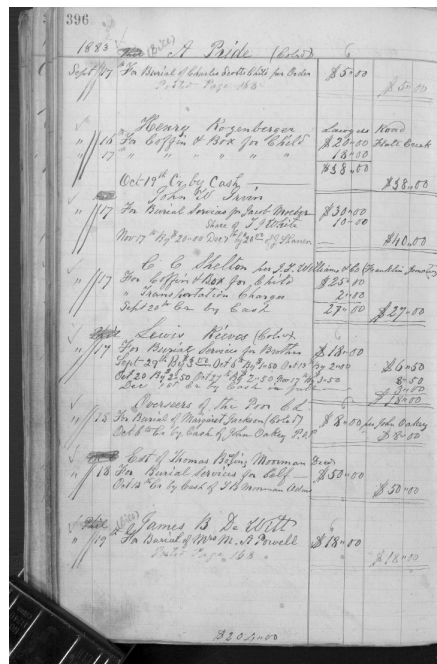 396
1883 (Bill) A Pride (Colod)
Sept 17 For Burial of Charles Scotts Child per Order $5.00
Posted Page 163 $5.00
Henry Rozenberger Lawyers Road
" 16 For Coffin & Box for Child $20.00 Flats Creek
" 17 " " " " " 18.00
$38.00
Oct 19th Cr by Cash $38.00
John W Irvin
" 17 For Burial Services for Jacob $30.00
Share of T J White 10.00
Nov 17th By $20.00 Dec 7th By 20.00 $40.00
C C Shelton per J. T. Williams & Co (Franklin
" 17 For Coffin & Box for Child $25.00
" Transportation Charges 2.00
Sept 20th Cr by Cash 27.00 $27.00
Lewis Reeves (Colod)
" 17 For Burial Service for Brother $18.00
Sept 29th By $3.00 Oct 6 By 1.50 Oct 13th By 2.00 $6.50
Oct 20 By 2.50 Oct 27th By 2.50 Nov 17th By 3.50 8.50
Dec 1st Cr by Cash in full
$18.00
Overseers of the Poor
" 25 For Burial of Margaret Jackson (Colod) $8.00 per John Oakey
Oct 6th Cr by Cash of John Oakey $8.00
Est of Thomas Moorman Decd
" 18 For Burial Services for Self $50.00
Oct Cr by Cash of Moorman Admr $50.00
(Bill) James B De Witt
" 19 For Burial of Mrs M. A Powell $18.00
Posted Page 163 $18.00